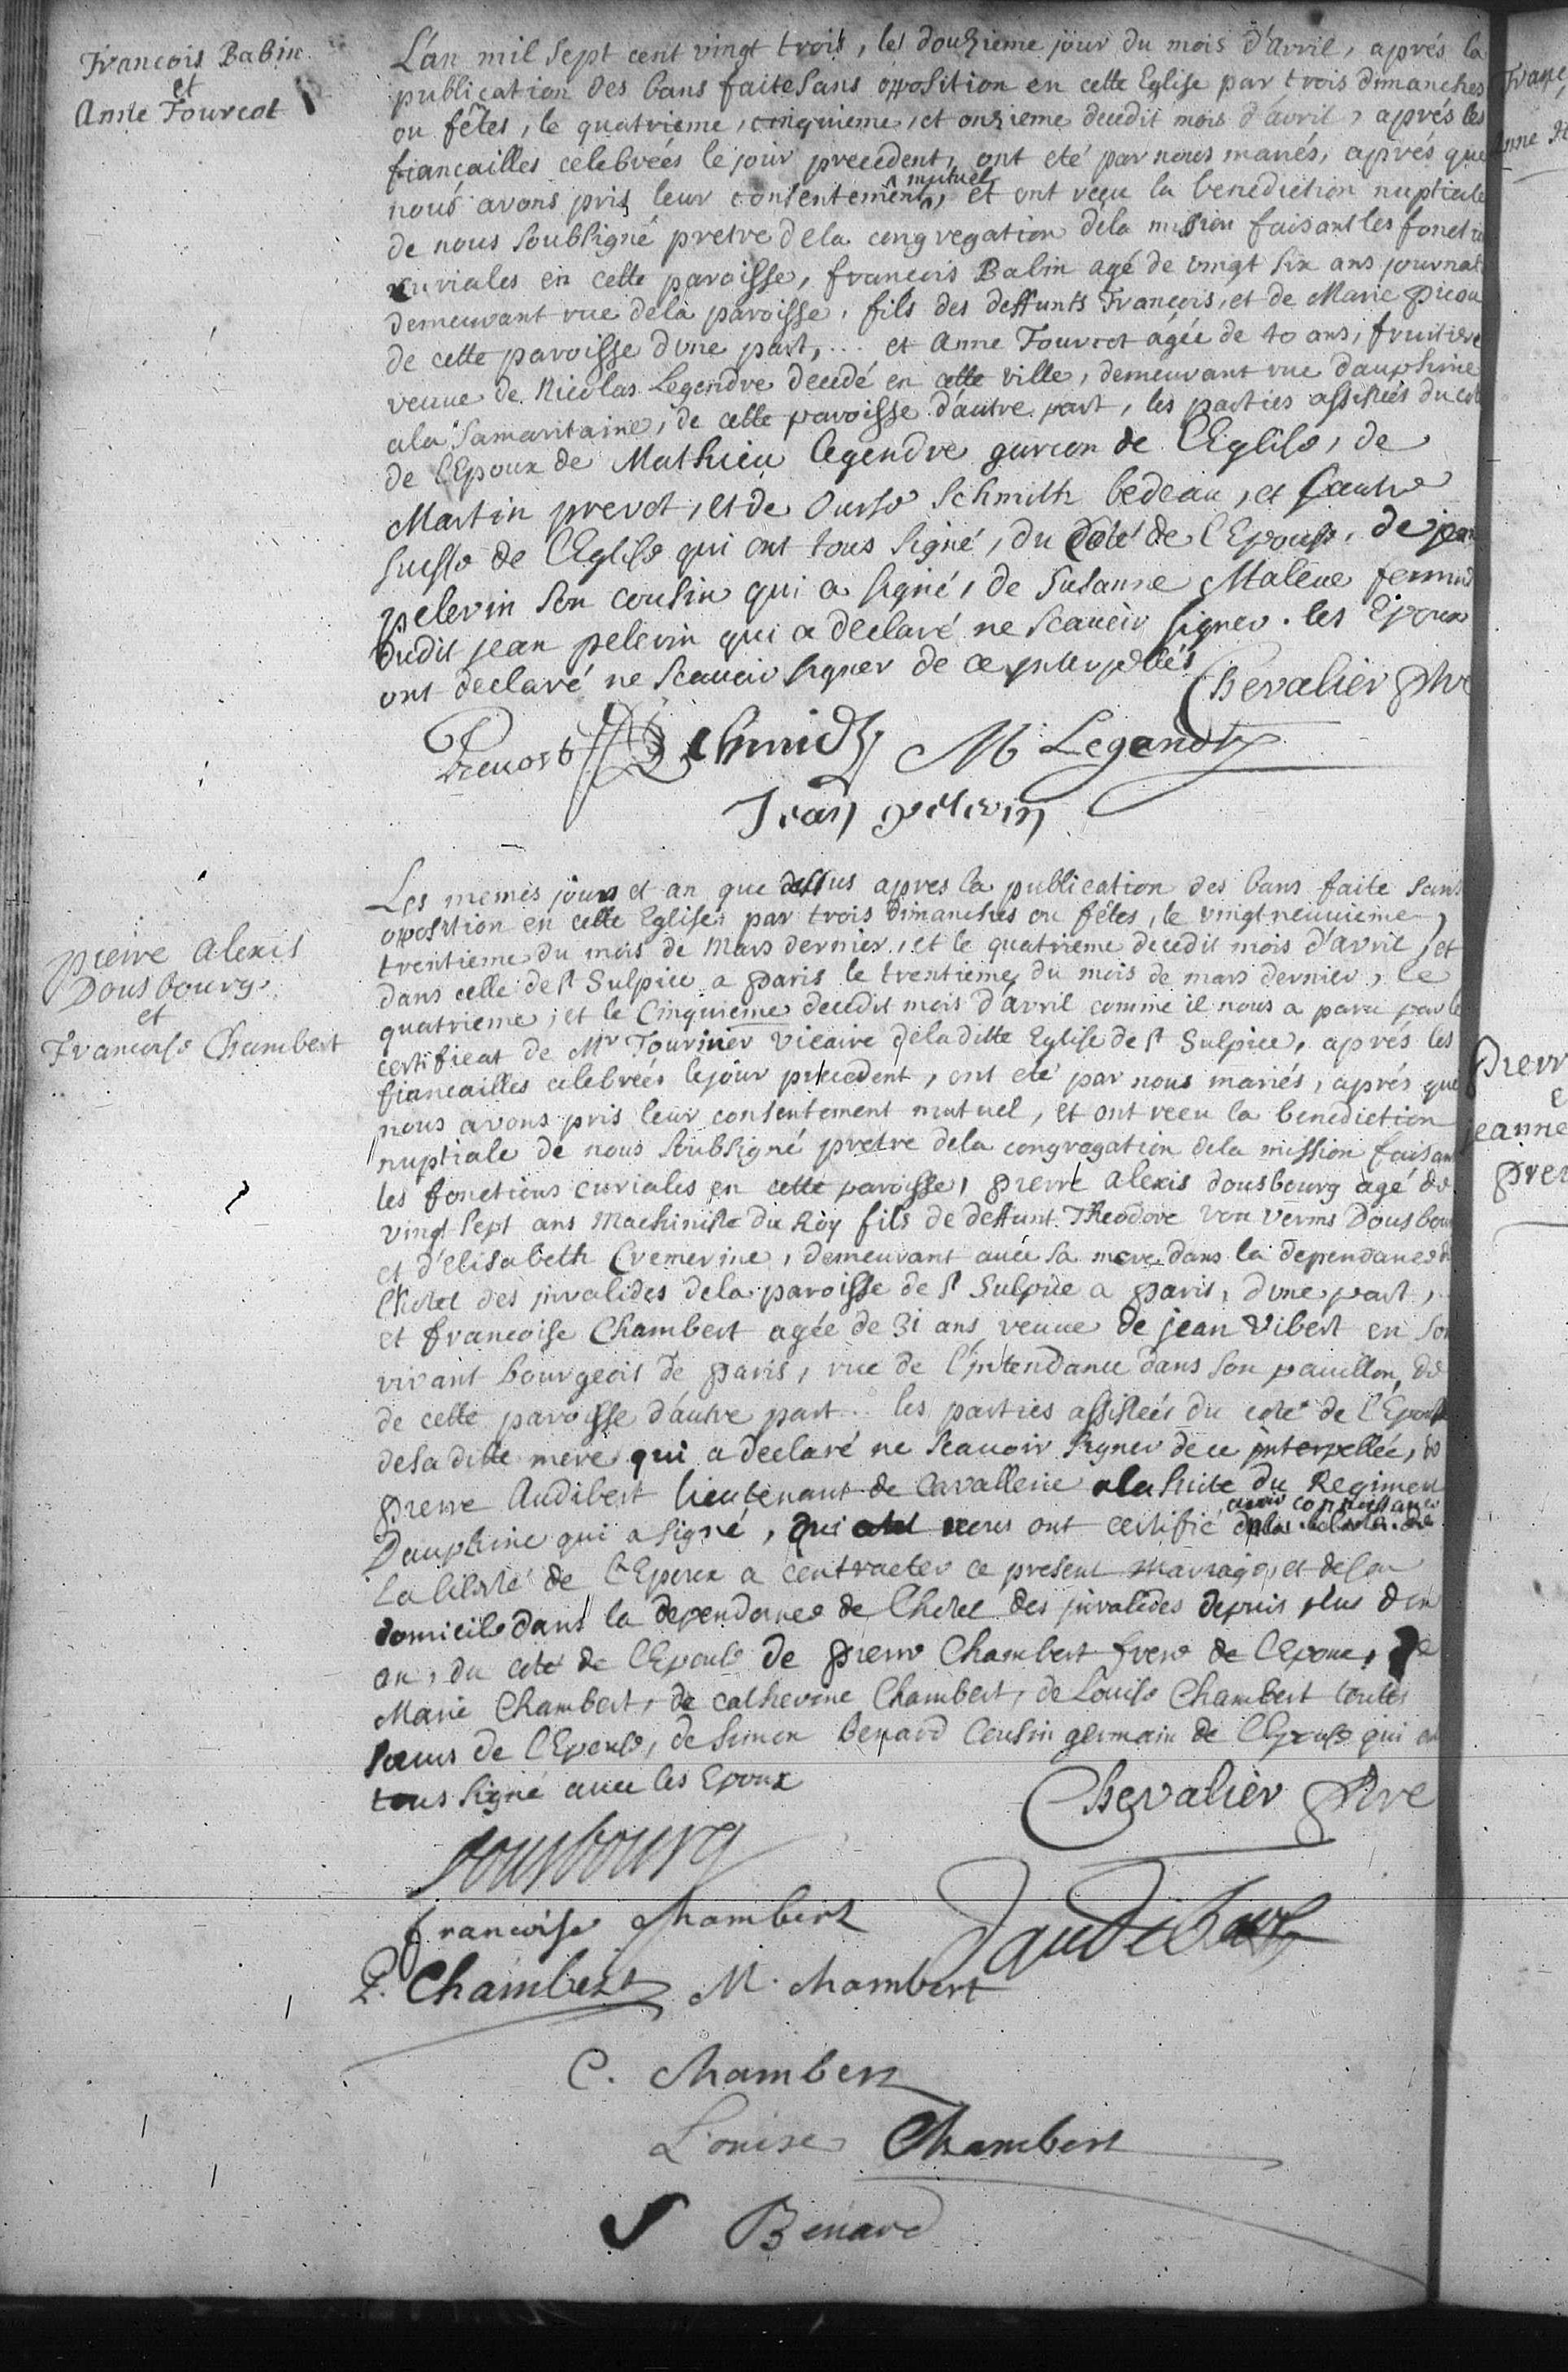 François Babin
et
Anne Fourcot
L'an mil sept cent vingt trois, le douzieme jour du mois d'avril, aprés la
publication des bans faite sans opposition en cette Eglise par trois dimanches
ou fêtes, le quatrieme, cinquieme, et onzieme decedit mois d'avril, aprés les
fiancailles celebrées le jour precedent, ont eté par nous mariés, aprés que
nous avons pris leur consentement mutuel, et ont reçu la benediction nuptiale
de nous soussigné pretre dela congregation dela mission faisant les foncti
curiales en cette paroisse, francois Babin agé de vingt six ans journal
demeurant rue dela paroisse, fils des deffunts François, et de Marie Picou
de cette paroisse dune part, ... et Anne Fourcot agée de 40 ans, fruitiere
veuve de Nicolas Legendre decedé en cette ville, demeurant rue Dauphine
ala Samaritaine, de cette paroisse d'autre part, les parties assistées du cot
de l'Epoux de Mathieu legendre garcon de l'Eglise, de
Martin prevot, et de Ourse Schmith bedeau, et l'autre
suisse de l'Eglise qui ont tous signé, du Coté de l'Epouse, de jean
pelevin son cousin qui a signé, de Susanne Maleue femme
dudit jean pelevin qui a declaré ne scauoir signer. les Epoux
ont declaré ne scauoir signer de ce interpellés
Chevalier Ptre
Preuost Schmidt M Legendre
Jean pelevin
pierre alexis
Dousbourg
et
Francoise Chambert
Les memes jours et an que dessus apres la publication des bans faite sans
opposition en cette Eglise par trois dimanches ou fêtes, le vingt neuuieme,
trentieme du mois de Mars dernier, et le quatrieme decedit mois d'avril, et
dans celle de St Sulpice a paris le trentieme du mois de mars dernier, le
quatrieme, et le Cinquieme decedit mois d'avril comme il nous a paru par le
certificat de Mr Tourinier vicaire deladitte Eglise de St Sulpice, aprés les
fiancailles celebrées le jour precedent, ont eté par nous mariés, aprés que
nous avons pris leur consentement mutuel, et ont receu la benediction
nuptiale de nous soubsigné pretre dela congregation dela mission faisant
les fonctions curiales en cette paroisse, pierre alexis dousbourg agé de
vingt sept ans Machiniste du Roy fils de deffunt Theodore von verms Dousbour
et d'Elisabeth Cremerine, demeurant auec sa mere dans la dependance de
l'hotel des invalides dela paroisse de St Sulpice a paris, dune part,
et francoise Chambert agée de 31 ans veuue de jean Vibert en son
vivant bourgeois de paris, rue de l'intendance dans son pauillon, de
de cette paroisse d'autre part .. les parties assistées du coté de l'Epoux
desaditte mere qui a declaré ne scauoir signer de ce interpellée, de
pierre Audibert lieutenant de Cavallerie ala suite du Regiment
Dauphine qui a signé, qui nous ont certifié auoir connoissance de
la liberté de l'Epoux a contracter ce present mariage, et deson
domicile dans la dependance de l'hotel des invalides depuis plus d'un
an, du coté de l'Epouse de pierre Chambert frere de l'Epouse, de
Marie Chambert, de catherine Chambert, de Louise Chambert toutes
soeurs de l'Epouse, de simon benard Cousin germain de l'Epouse qui on
tous signé auec les Epoux
Chevalier Ptre
Dousbourg
francoise Chambert
Daudibert
P. Chambert M. Chambert
C. Chambert
Louise Chambert
S Benard
Franç
Anne
Pierr
e
jeanne
Prev